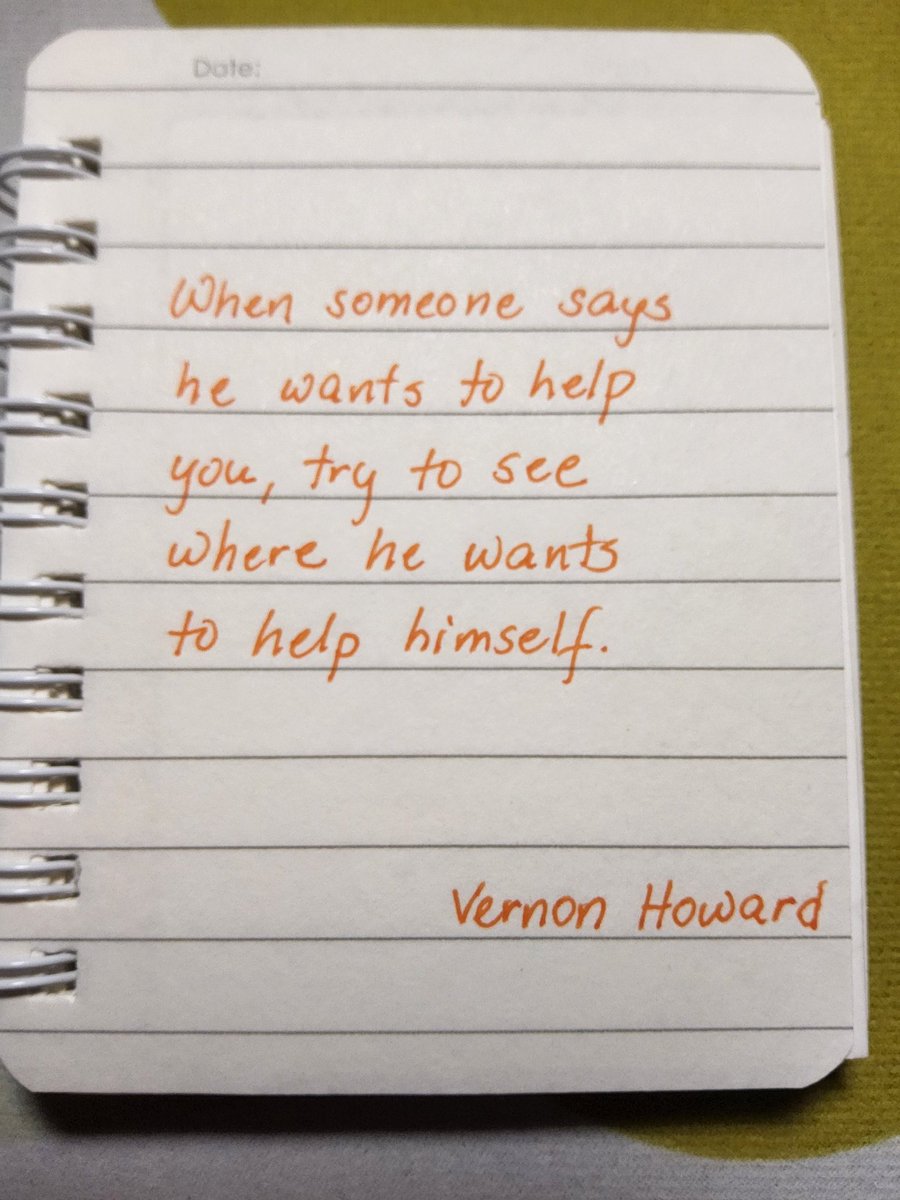 Date:
When someone says
he wants to help
you, try to see
where he wants
to help himself.
Vernon Howard